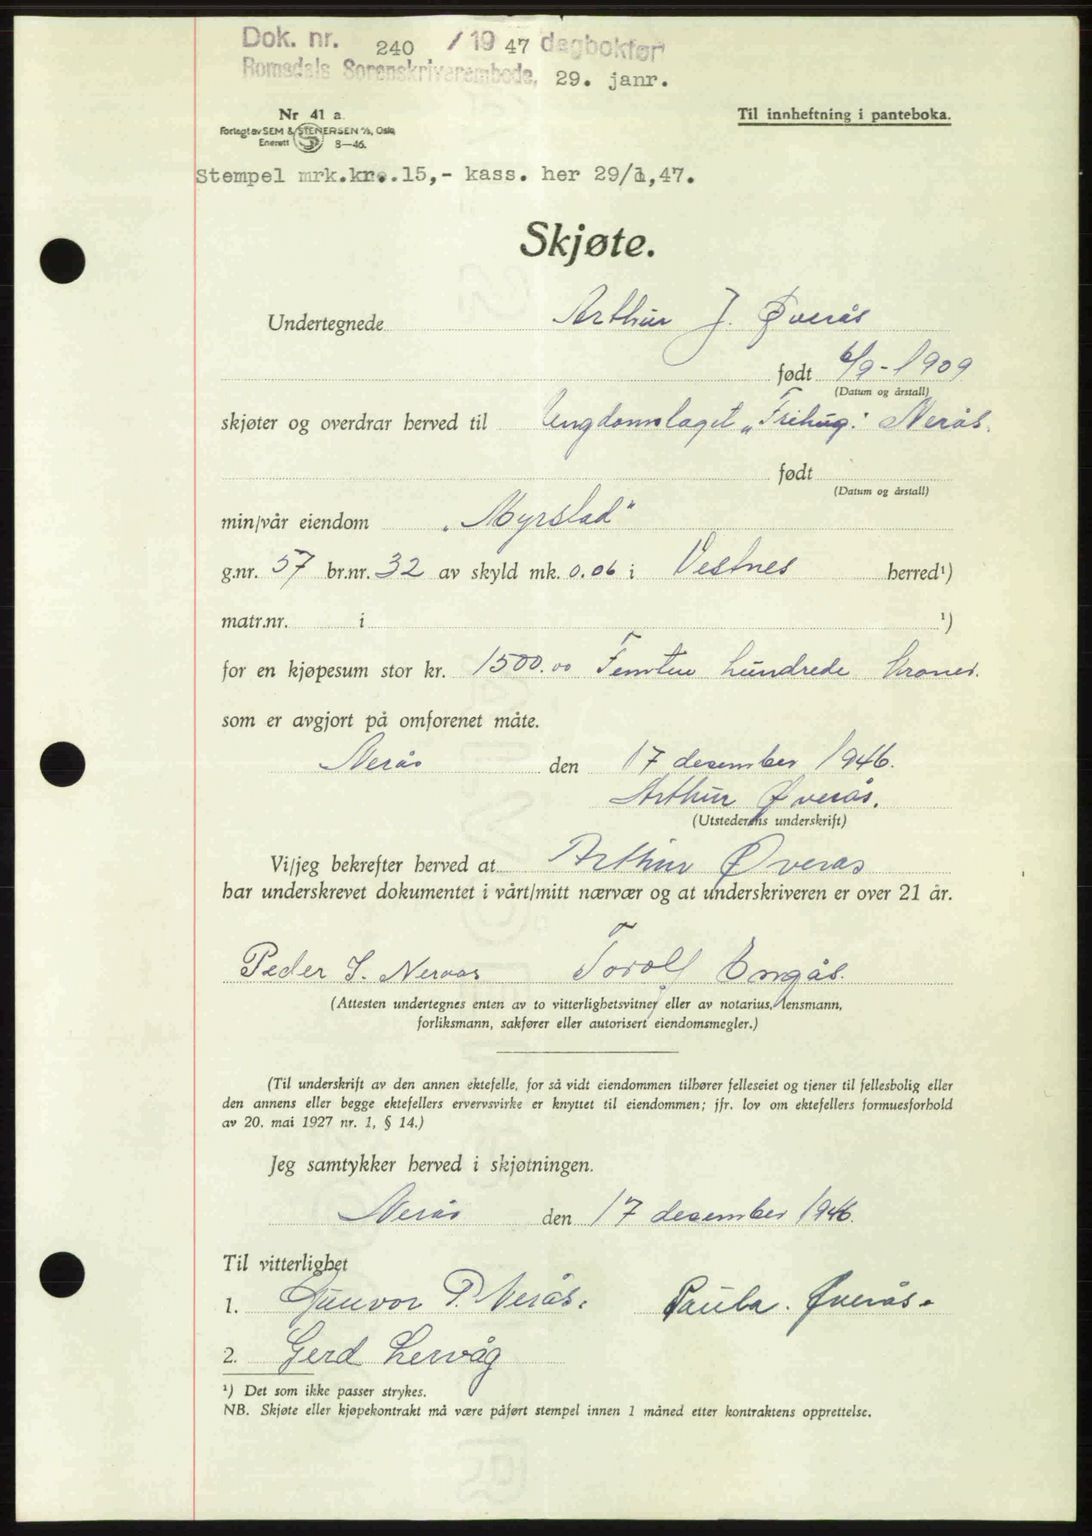 Dok. nr. 240 / 1947 dagbokført
Romsdals Sorenskriverembede, 29. janr.
Nr 41 a.
Til innheftning i panteboka.
Forlagt av SEM & STENERSEN A/S, Oslo
Enerett 8—46.
Stempel mrk.kr..15,- kass. her 29/1,47.
Skjøte.
Undertegnede Arthur J. Øverås
født 6/9-1909
(Datum og årstall)
skjøter og overdrar herved til Ungdomslaget „Frihug". Nerås.
født
(Datum og årstall)
min/vår eiendom „Myrslad"
g.nr. 57 br.nr. 32 av skyld mk. 0.06 i Vestnes herred¹)
matr.nr. i ¹)
for en kjøpesum stor kr. 1500.00 Femten hundrede kroner.
som er avgjort på omforenet måte.
Nerås den 17 desember 1946.
Arthur Øverås.
(Utstederens underskrift)
Vi/jeg bekrefter herved at Arthur Øverås
har underskrevet dokumentet i vårt/mitt nærvær og at underskriveren er over 21 år.
Peder I. Neraas Torolf Engås.
(Attesten undertegnes enten av to vitterlighetsvitner eller av notarius, lensmann,
forliksmann, sakfører eller autorisert eiendomsmegler.)
(Til underskrift av den annen ektefelle, for så vidt eiendommen tilhører felleseiet og tjener til fellesbolig eller
den annens eller begge ektefellers ervervsvirke er knyttet til eiendommen; jfr. lov om ektefellers formuesforhold
av 20. mai 1927 nr. 1, § 14.)
Jeg samtykker herved i skjøtningen.
Nerås den 17 desember 1946.
Til vitterlighet
1. Gunvor P. Nerås. Paula. Øverås.
2. Gerd Lervåg
¹) Det som ikke passer strykes.
NB. Skjøte eller kjøpekontrakt må være påført stempel innen 1 måned etter kontraktens opprettelse.